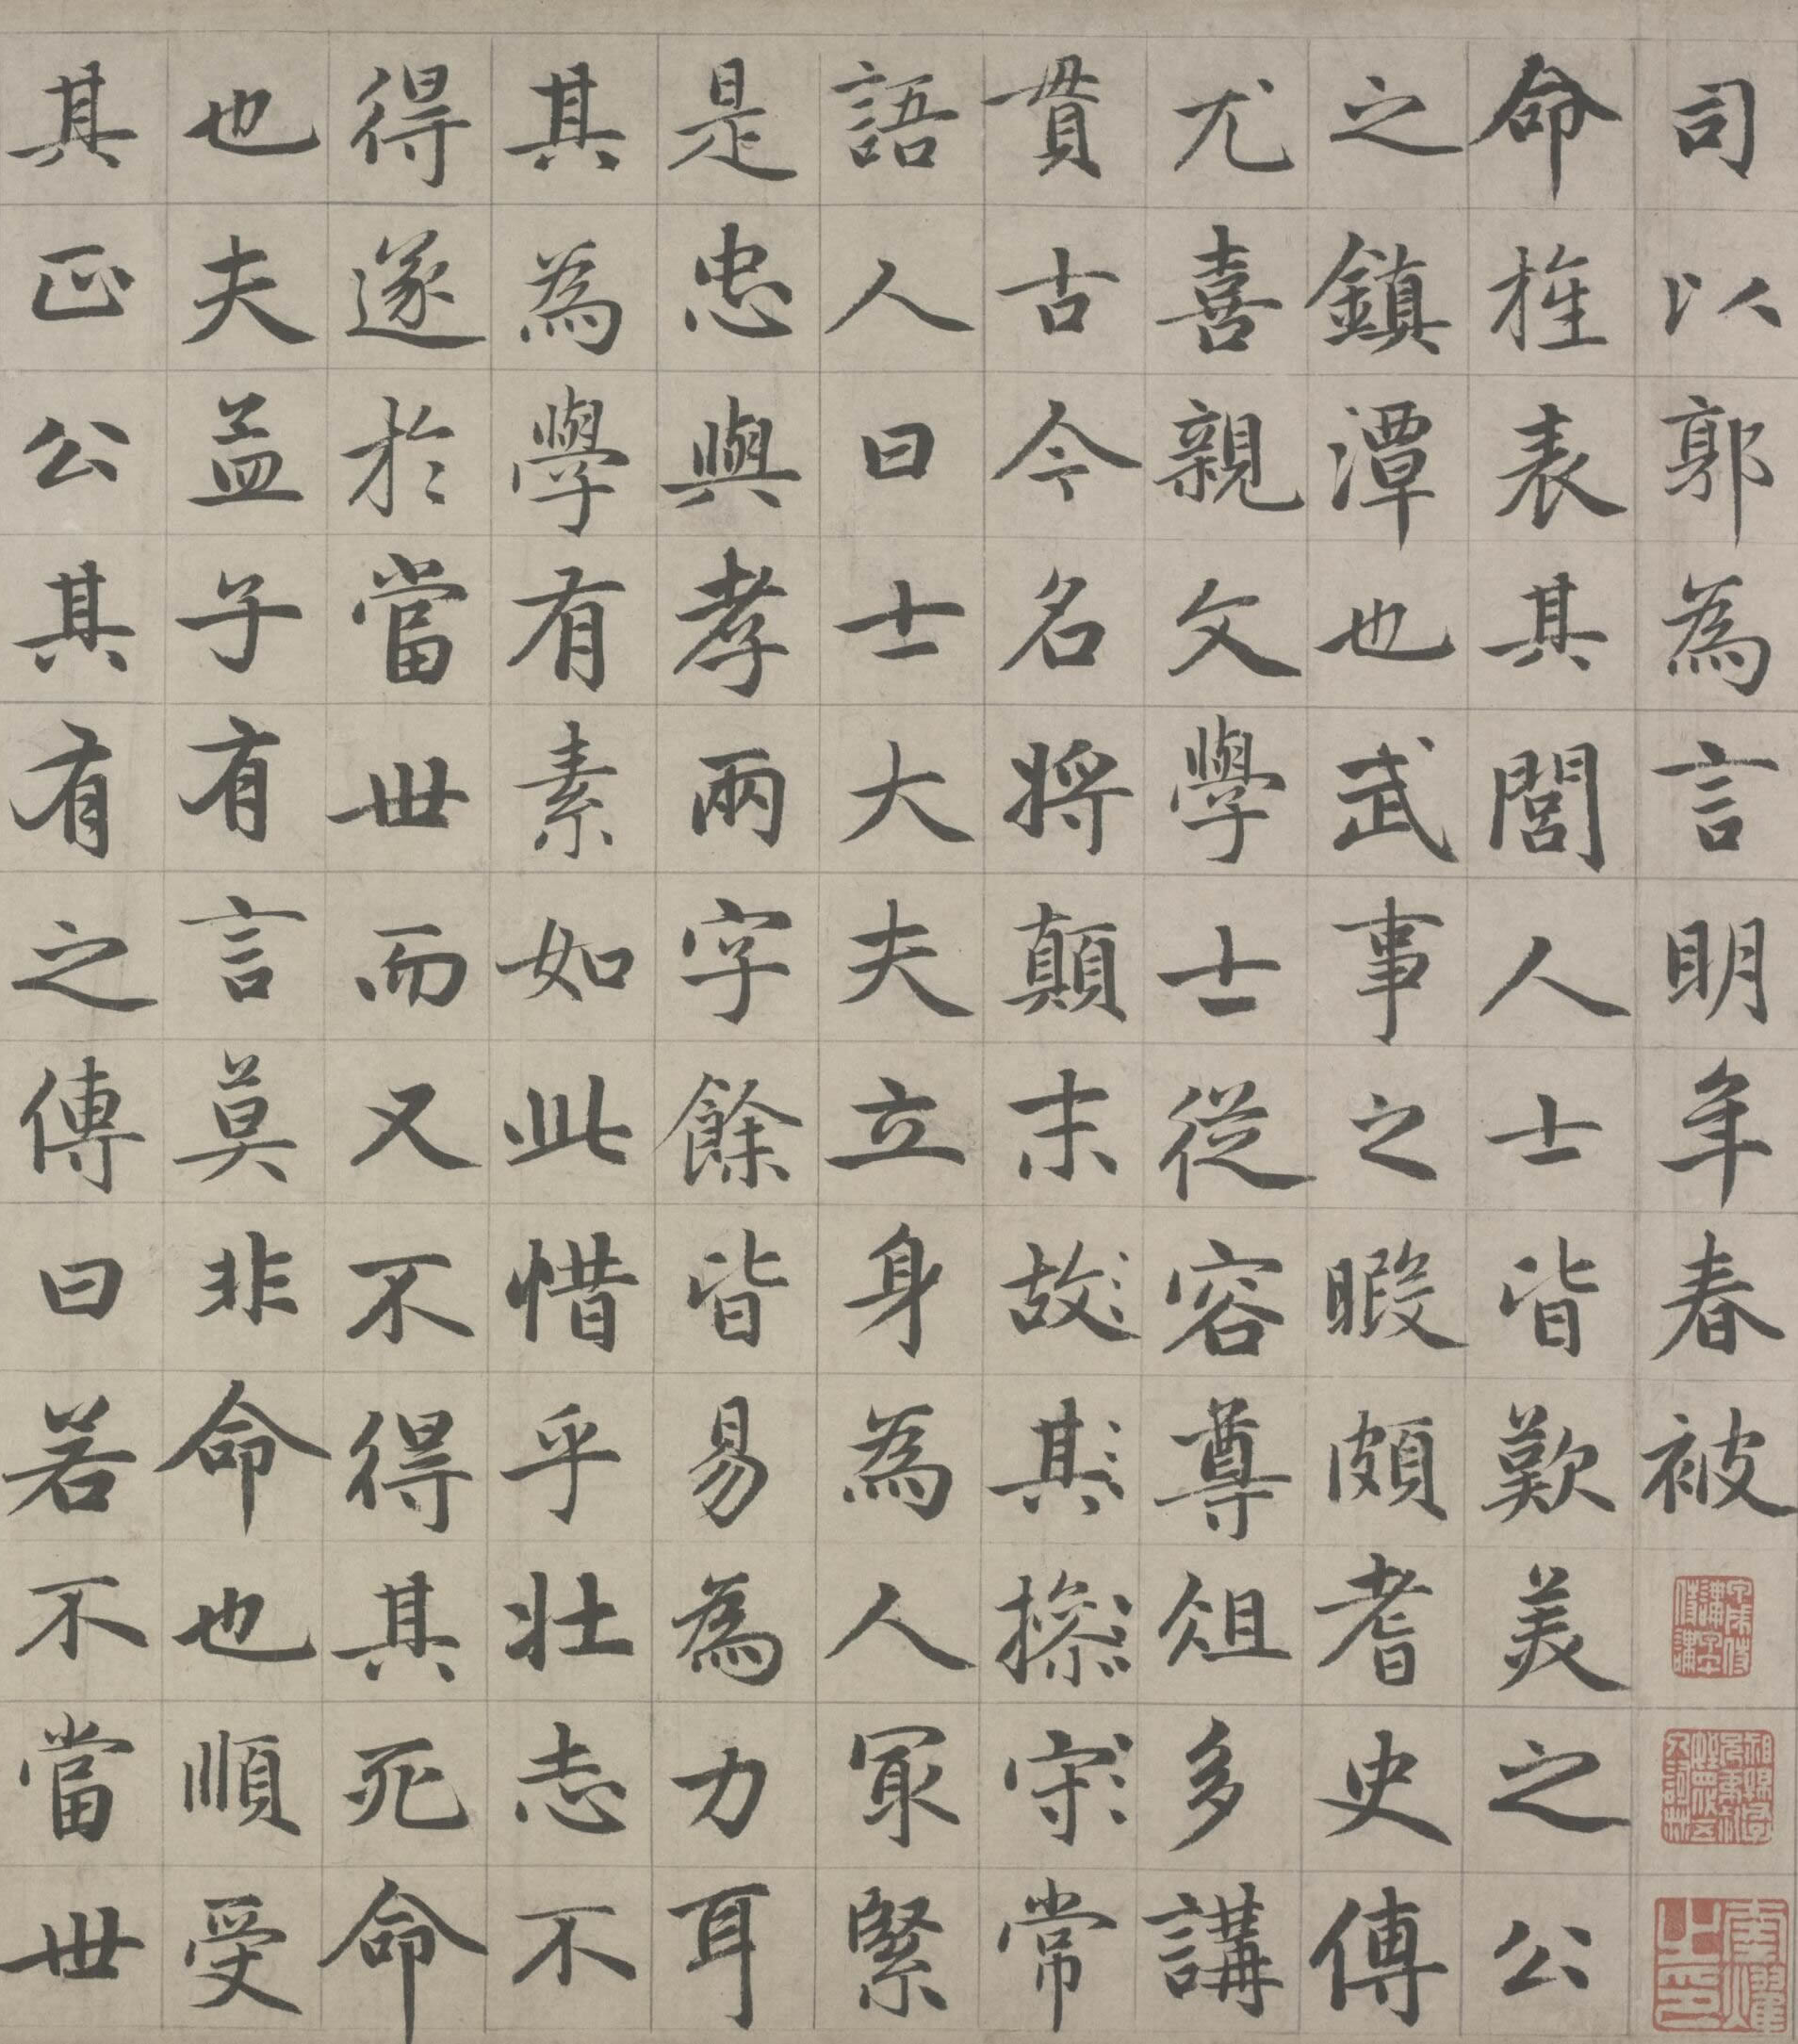 司以郭為言明年春被
命旌表其閭人士皆歎美之公
之鎮潭也武事之暇頗耆史傳
尤喜親文學士從容尊俎多講
貫古今名將顛末故其操守常
語人曰士大夫立身為人冣緊
是忠與孝兩字餘皆易為力耳
其為學有素如此惜乎壯志不
得遂於當世而又不得其死命
也夫益子有言莫非命也順受
其正公其有之傳曰若不當世